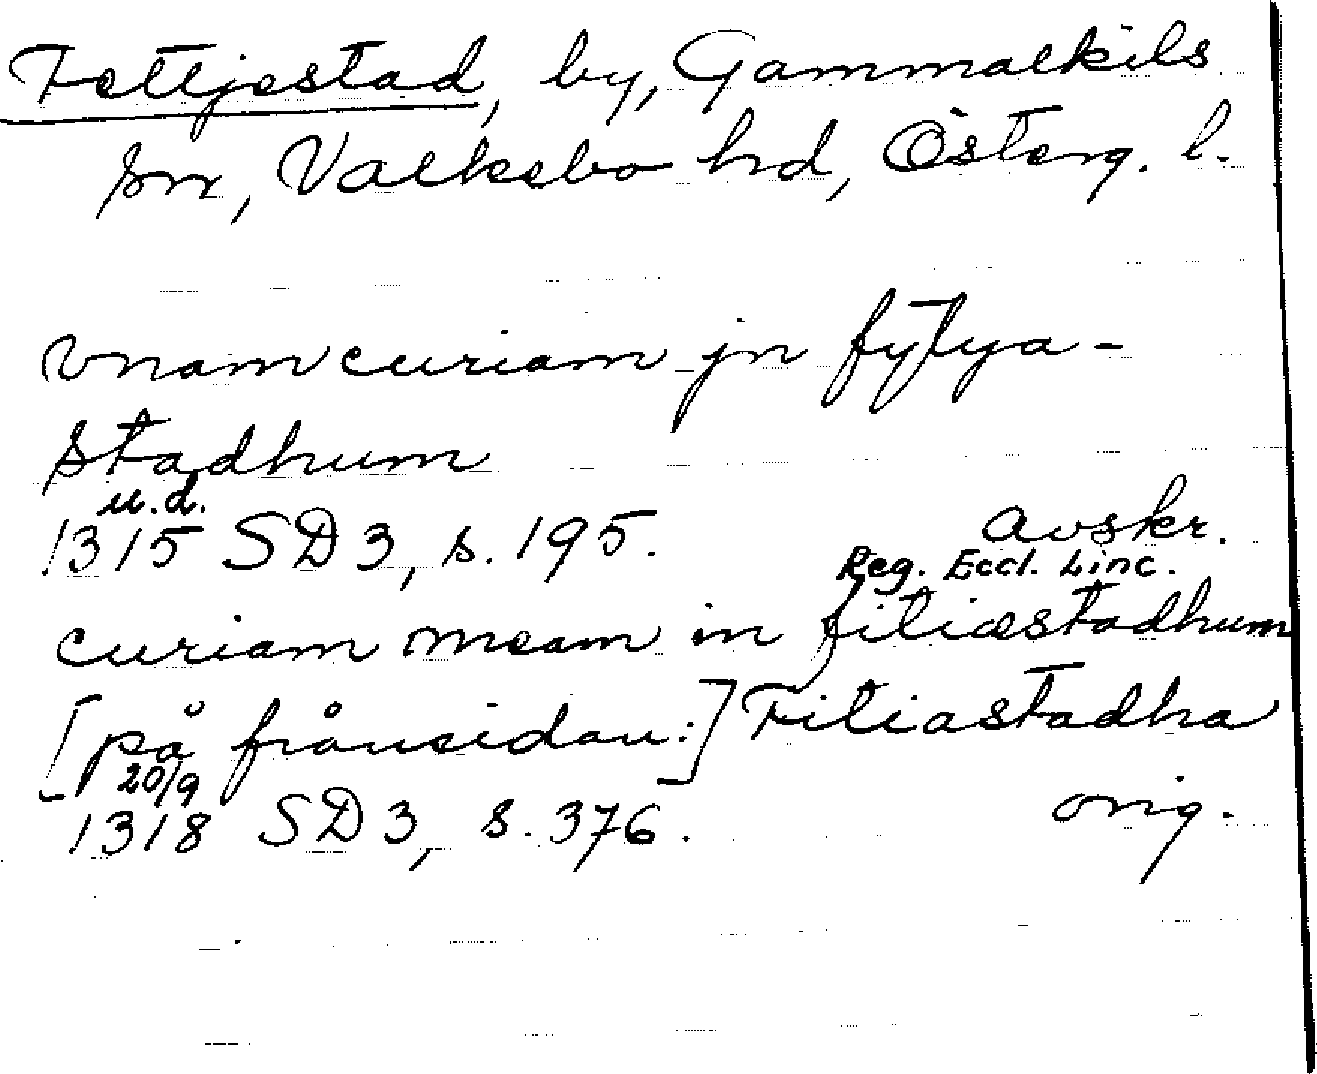 Fettjestad, by, Gammalkils
sn, Valkebo hd, Österg. l.
Vnam curiam jn fytya-
stadhum
u.d.
1315 SD 3, s. 195. Avskr.
Reg. Eccl. Linc.
curiam meam in fitiæstadhum
[på frånsidan:] Fitiastadha
20/9
1318 SD 3, s. 376. orig.